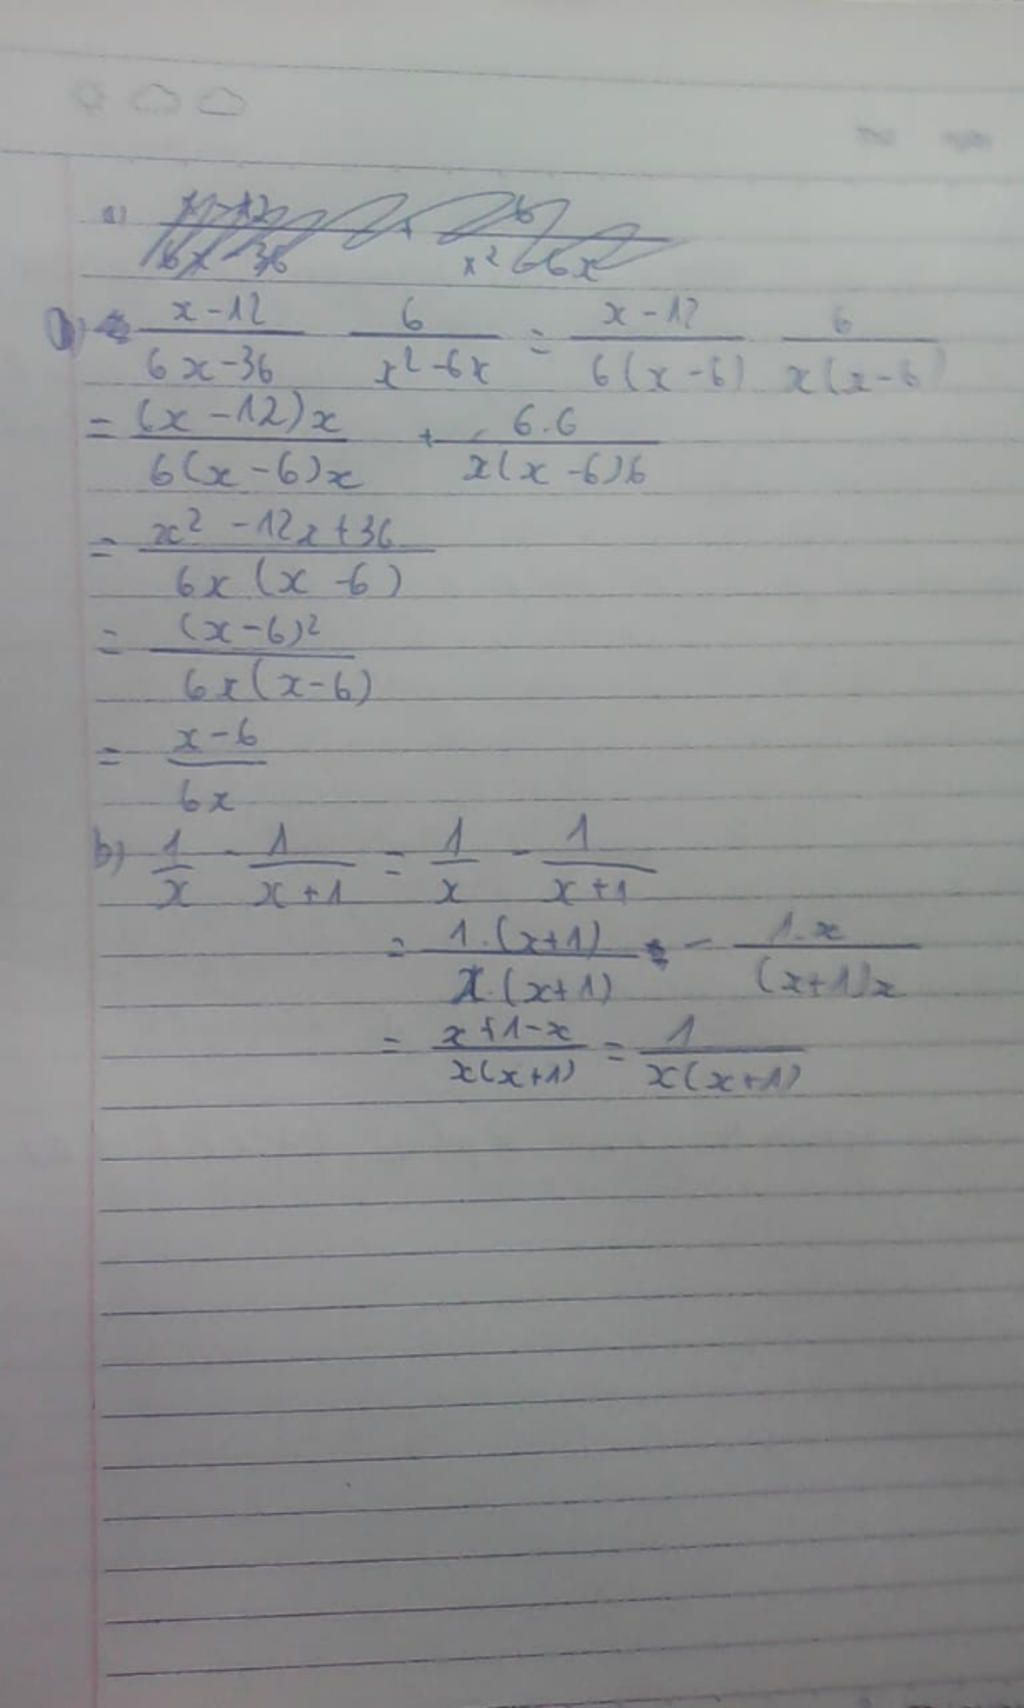 a) x-12/6x-36 + 6/x²-6x
a) x-12/6x-36 6/x²-6x = x-12/6(x-6) 6/x(x-6)
= (x-12)x/6(x-6)x + 6.6/x(x-6)6
= x²-12x+36/6x(x-6)
= (x-6)²/6x(x-6)
= x-6/6x
b) 1/x - 1/x+1 = 1/x - 1/x+1
= 1.(x+1)/x.(x+1) - 1.x/(x+1)x
= x+1-x/x(x+1) = 1/x(x+1)